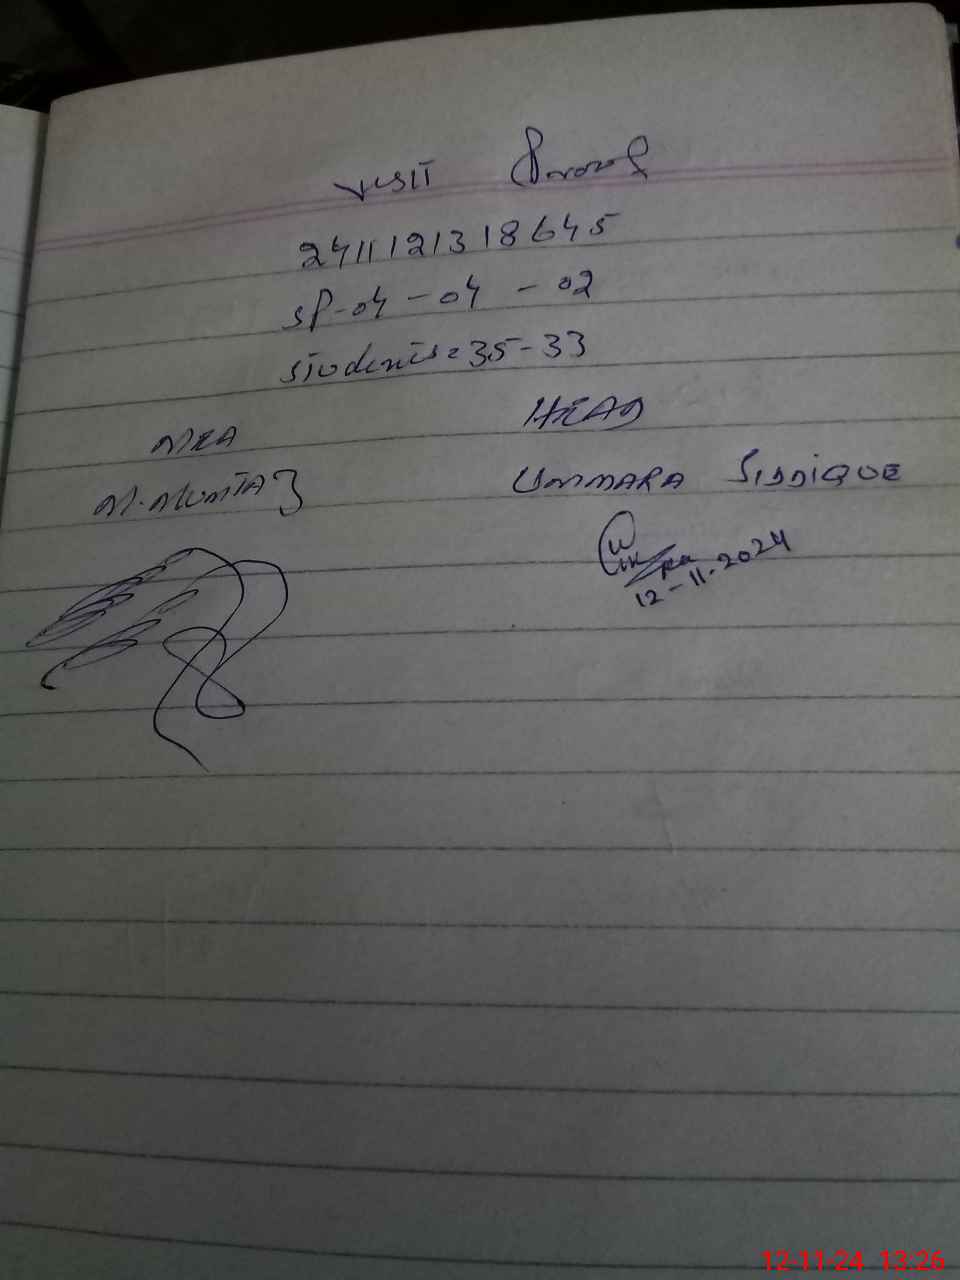 VISIT Proof
2411121318645
SP-04-04-02
Students = 35-33
MEA HEAD
M. MUMTAZ UMMARA SIDDIQUE
12-11-2024
12-11-24 13:26